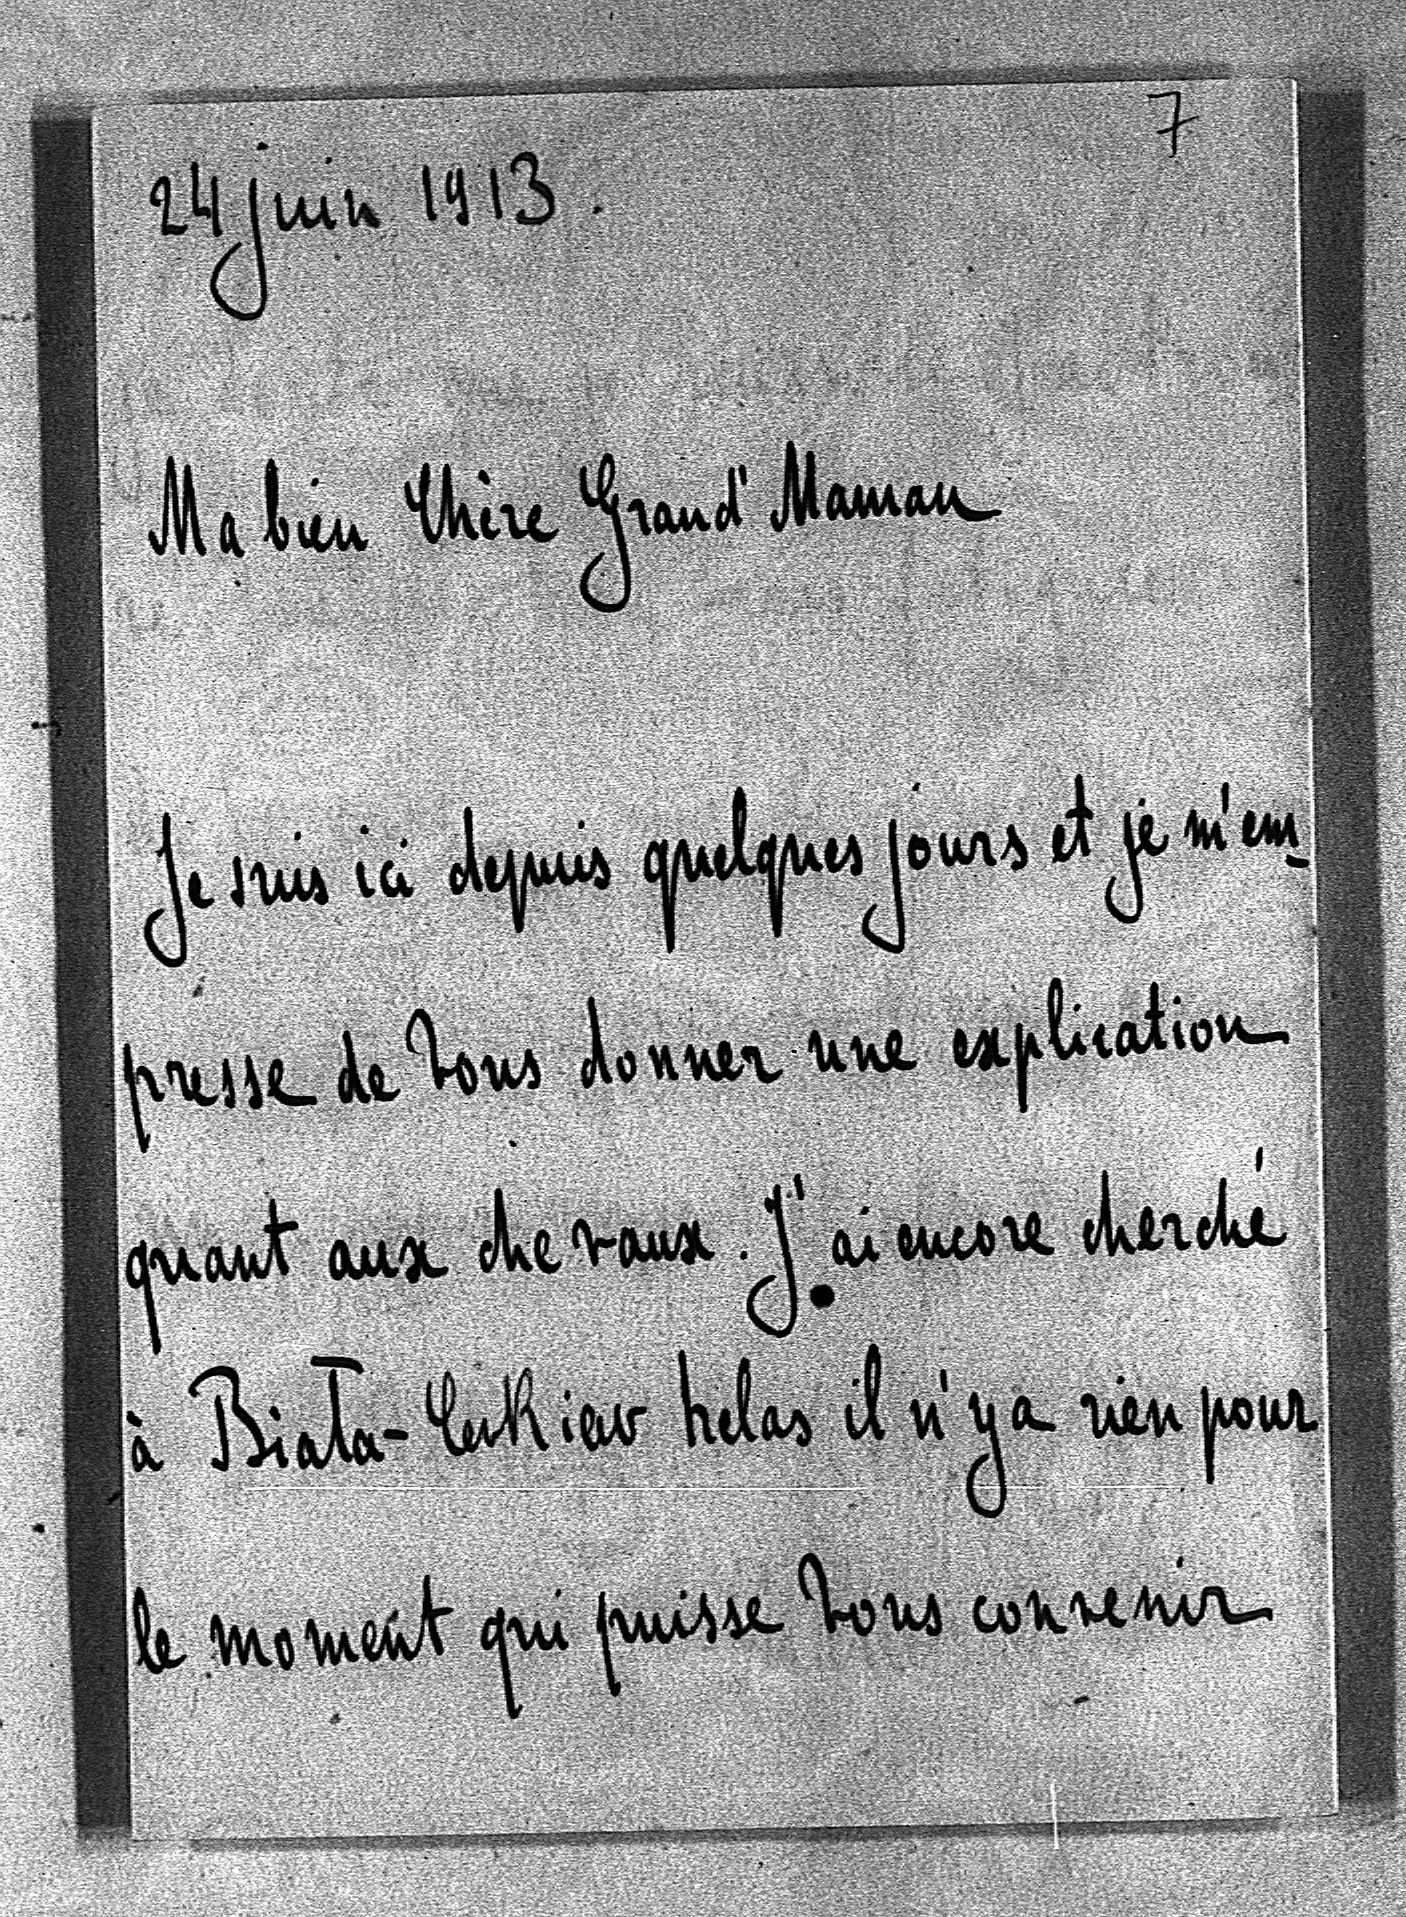 7
24 juin 1913.
Ma bien Chère Grand'Maman
Je suis ici depuis quelques jours et je m'em-
presse de Vous donner une explication
quant aux chevaux. J'ai encore cherché
à Biała-Cerkiew helas il n'y a rien pour
le moment qui puisse Vous convenir